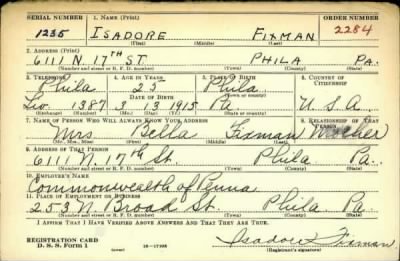 SERIAL NUMBER 1. NAME (Print) ORDER NUMBER
1235 ISADORE FIXMAN 2284
(First) (Middle) (Last)
2. ADDRESS (Print)
6111 N. 17TH ST. PHILA PA.
(Number and street or R. F. D. number) (Town) (County) (State)
3. TELEPHONE 4. AGE IN YEARS 5. PLACE OF BIRTH 6. COUNTRY OF CITIZENSHIP
Phila 25 Phila
DATE OF BIRTH (Town or county)
Liv. 1387 3 13 1915 Pa U.S.A.
(Exchange) (Number) (Mo.) (Day) (Yr.) (State or country)
7. NAME OF PERSON WHO WILL ALWAYS KNOW YOUR ADDRESS 8. RELATIONSHIP OF THAT PERSON
Mrs Bella Fixman Mother
(Mr., Mrs., Miss) (First) (Middle) (Last)
9. ADDRESS OF THAT PERSON
6111 N. 17th St. Phila Pa.
(Number and street or R. F. D. number) (Town) (County) (State)
10. EMPLOYER'S NAME
Commonwealth of Penna
11. PLACE OF EMPLOYMENT OR BUSINESS
253 N. Broad St. Phila. Pa.
(Number and street or R. F. D. number) (Town) (County) (State)
I AFFIRM THAT I HAVE VERIFIED ABOVE ANSWERS AND THAT THEY ARE TRUE.
REGISTRATION CARD
D. S. S. Form 1 (over) 16—17105 Isadore Fixman
(Registrant's signature)